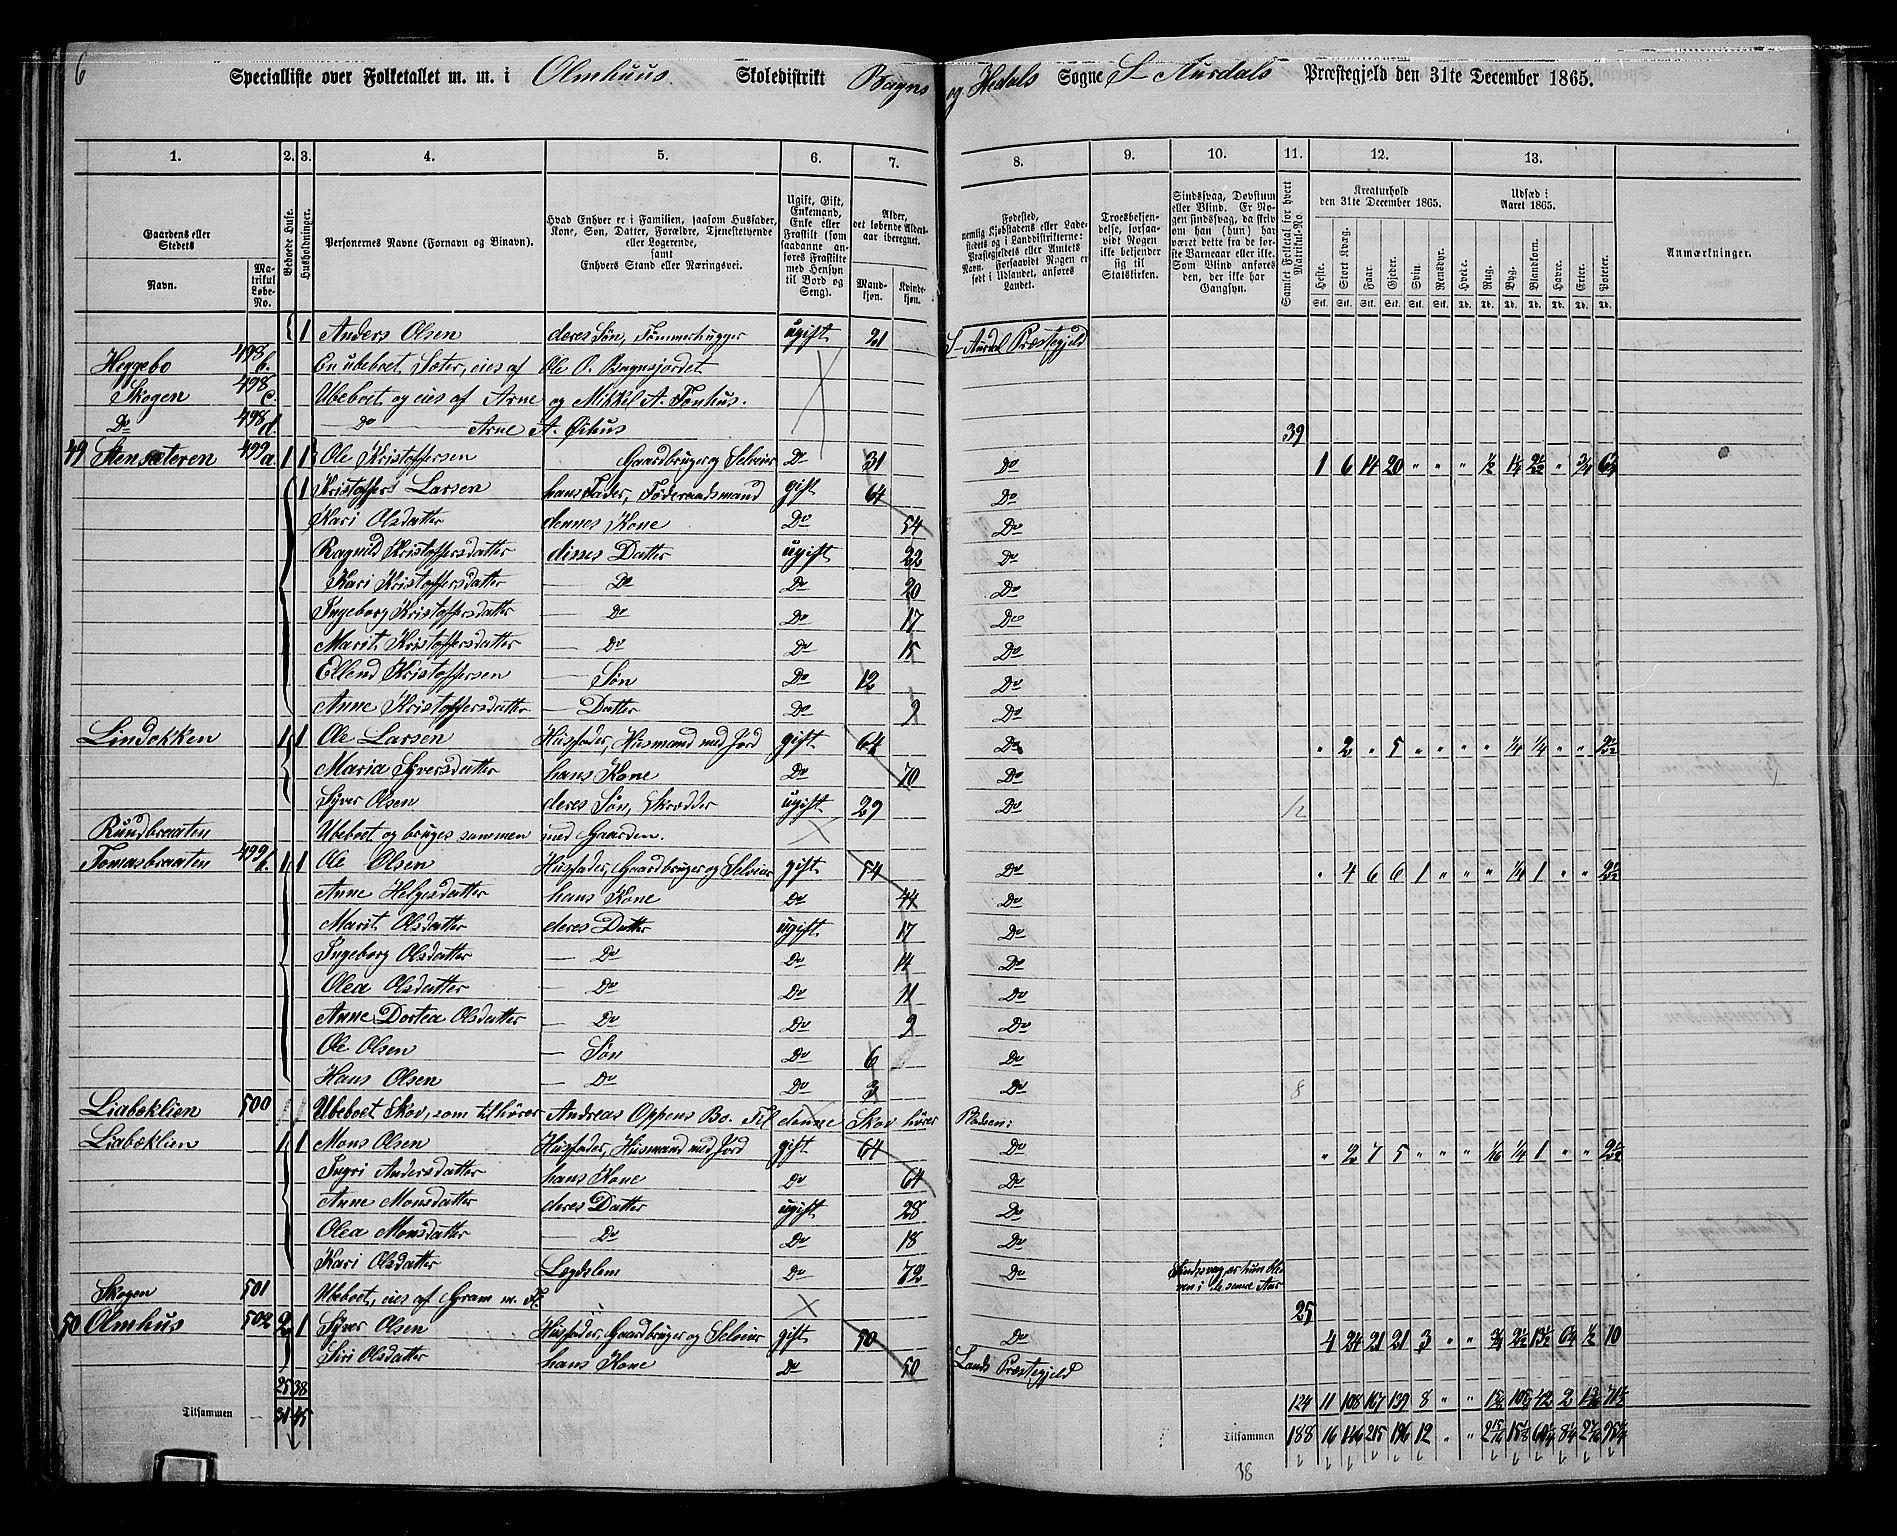 6 Specialliste over Folketallet m. m. i Olmhuus. Skoledistrikt Bagns og Hedals Sogne S Aurdals Præstegjeld den 31te December 1865.
1. 2. 3. 4. 5. 6. 7. 8. 9. 10. 11. 12. 13.
Gaardens eller Stedets
Navn.
Matrikul Løbe-No.
Beboede Huse.
Husholdninger.
Personernes Navne (Fornavn og Binavn).
Hvad Enhver er i Familien, saasom Husfader, Kone, Søn, Datter, Forældre, Tjenestetyende eller Logerende, samt Enhvers Stand eller Næringsvei.
Ugift, Gift, Enkemand, Enke eller Fraskilt (som saadanne anføres Fraskilte med Hensyn til Bord og Seng).
Alder, det løbende Aldersaar iberegnet.
Mandkjøn. Kvindekjøn.
Fødested, nemlig Kjøbstadens eller Ladestedets og i Landdistrikterne: Præstegjeldets eller Amtets Navn. Forsaavidt Nogen er født i Udlandet, anføres Landet.
Troesbekjendelse, forsaavidt Nogen ikke bekjender sig til Statskirken.
Sindssvag, Døvstum eller Blind. Er Nogen sindssvag, da skrives om han (hun) har været dette fra de første Barneaar eller ikke. Som Blind anføres den, der ikke har Gangsyn.
Samlet Folketal for hvert Matrikul-No.
Kreaturhold den 31te December 1865.
Heste. Stort Kvæg. Faar. Gjeder. Svin. Rensdyr.
Udsæd i Aaret 1865.
Hvede. Rug. Byg. Blandkorn. Havre. Erter. Poteter.
Anmærkninger.
1 Anders Olsen deres Søn, Tømmerhugger ugift 21 S-Aurdal Præstegjeld
Heggebo 498 b. En ubeboet Sæter, eies af Ole O. Bagnsjordet
Skogen 498 c. Ubeboet og eies af Arne og Mikkel A. Fønhus.
Do 498 d. — Do — Arne A. Ørhus 39
49 Stensæteren 499 a. 1 1 Ole Kristoffersen Gaardbruger og Selveier Do 31 Do 1 6 14 20 " " " ½ 1¼ 2½ " ¾ 6½
1 Kristoffers Larsen hans Fader, Føderaadsmand gift 64 Do
Kari Olsdatter dennes Kone Do 54 Do
Ragnild Kristoffersdatter disses Datter ugift 22 Do
Kari Kristoffersdatter — Do Do 20 Do
Ingeborg Kristoffersdatter — Do Do 17 Do
Marit Kristoffersdatter — Do Do 15 Do
Ellend Kristoffersen — Søn Do 12 Do
Anne Kristoffersdatter — Datter Do 9 Do
Lindøkken 1 1 Ole Larsen Husfader, Husmand med Jord gift 64 Do " 2 " 5 " " " " ¼ ¼ " " 2½
Maria Syversdatter hans Kone Do 70 Do
Syver Olsen deres Søn, Skrædder ugift 29 Do 12
Ruudbraaten Ubeboet og bruges sammen med Gaarden.
Tomasbraaten 499 b. 1 1 Ole Olsen Husfader, Gaardbruger og Selveier gift 54 Do " 4 6 6 1 " " " ¼ 1 " " 2½
Anne Helgesdatter hans Kone Do 44 Do
Marit Olsdatter deres Datter ugift 17 Do
Ingeborg Olsdatter — Do Do 14 Do
Olea Olsdatter — Do Do 11 Do
Anne Dortea Olsdatter — Do Do 9 Do
Ole Olsen — Søn Do 6 Do
Hans Olsen — Do Do 3 Do 8
Liabøklien 500 Ubeboet Skov, som tilhører Andreas Oppens Bo. Til denne Skov hører Pladsen:
Liabøklien 1 1 Mons Olsen Husfader, Husmand med Jord gift 64 Do " 2 7 5 " " " ⅙ ¼ 1 " " 2½
Ingri Andersdatter hans Kone Do 64 Do
Anne Monsdatter deres Datter ugift 28 Do
Olea Monsdatter — Do Do 18 Do
Kari Olsdatter Lægdslem Do 72 Do Sindssvag er hun bleven i de senere Aar
Skogen 501 Ubeboet, eies af Gram m. Fl. 25
50 Olmhus 502 2 1 Syver Olsen Husfader, Gaardbruger og Selveier gift 50 Do 4 24 21 21 3 " " ¾ 2½ 13½ 6¼ ½ 10
Siri Olsdatter hans Kone Do 50 Lands Præstegjeld
25 38 124 11 108 167 139 8 " " 42 2
Tilsammen 31 45 Tilsammen 188 16 146 215 196 12 " "
38